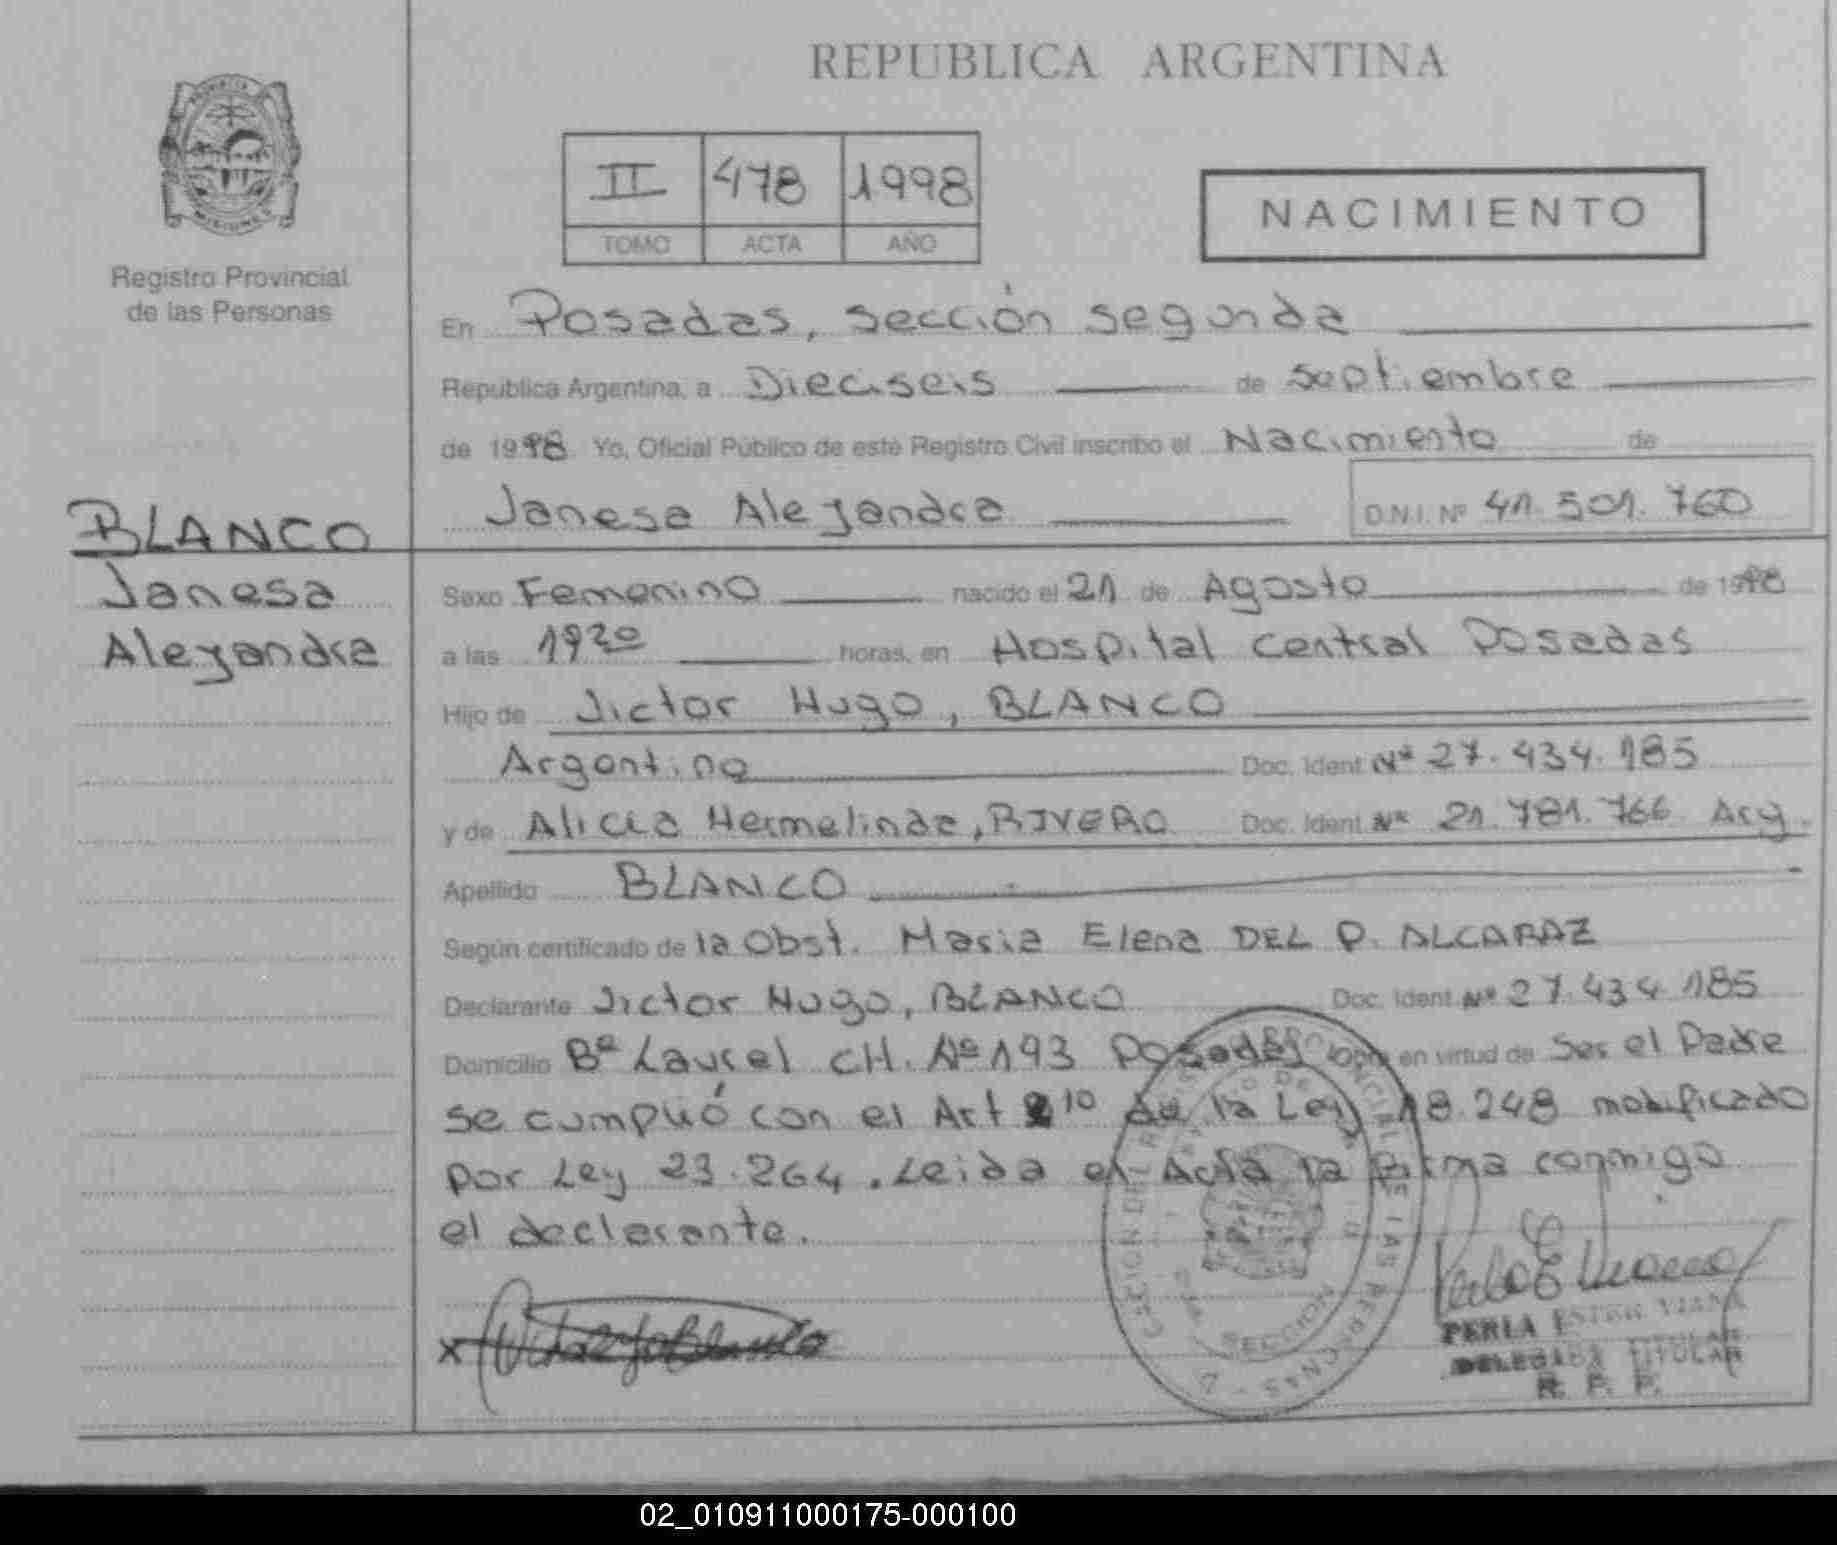 REPUBLICA ARGENTINA
PROVINCIA
MISIONES
Registro Provincial
de las Personas
II 478 1998
TOMO ACTA AÑO
NACIMIENTO
En Posadas, sección segunda
República Argentina, a Dieciseis de septiembre
de 1998 Yo, Oficial Público de este Registro Civil inscribo el Nacimiento de
Janesa Alejandra D.N.I. Nº 41.501.760
BLANCO
Janesa
Alejandra
Sexo Femenino nacido el 21 de Agosto de 1998
a las 1920 horas, en Hospital Central Posadas
Hijo de Victor Hugo, BLANCO
Argentino Doc. Ident Nº 27.434.185
y de Alicia Hermelinda, RIVERO Doc. Ident Nº 21.781.766 Arg.
Apellido BLANCO
Según certificado de la Obst. Maria Elena DEL P. ALCARAZ
Declarante Victor Hugo, BLANCO Doc. Ident Nº 27.434.185
Domicilio Bº Laurel CH. Nº 193 Posadas en virtud de Ser el Padre
se cumplió con el Art 10 de la Ley 18.248 modificado
por Ley 23.264. Leida el Acta la firma conmigo
el declarante.
SECCION
PERLA ESTER VIANA
DELEGADA TITULAR
R. P. P.
02_010911000175-000100